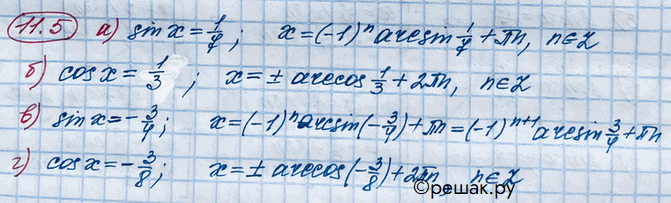 11.5 а) sin x = 1/4; x = (-1)ⁿ arcsin 1/4 + πn, n∈Z
б) cos x = 1/3; x = ± arccos 1/3 + 2πn, n∈Z
в) sin x = -3/4; x = (-1)ⁿ arcsin(-3/4) + πn = (-1)ⁿ⁺¹ arcsin 3/4 + πn
г) cos x = -3/8; x = ± arccos(-3/8) + 2πn, n∈Z
©решак.ру